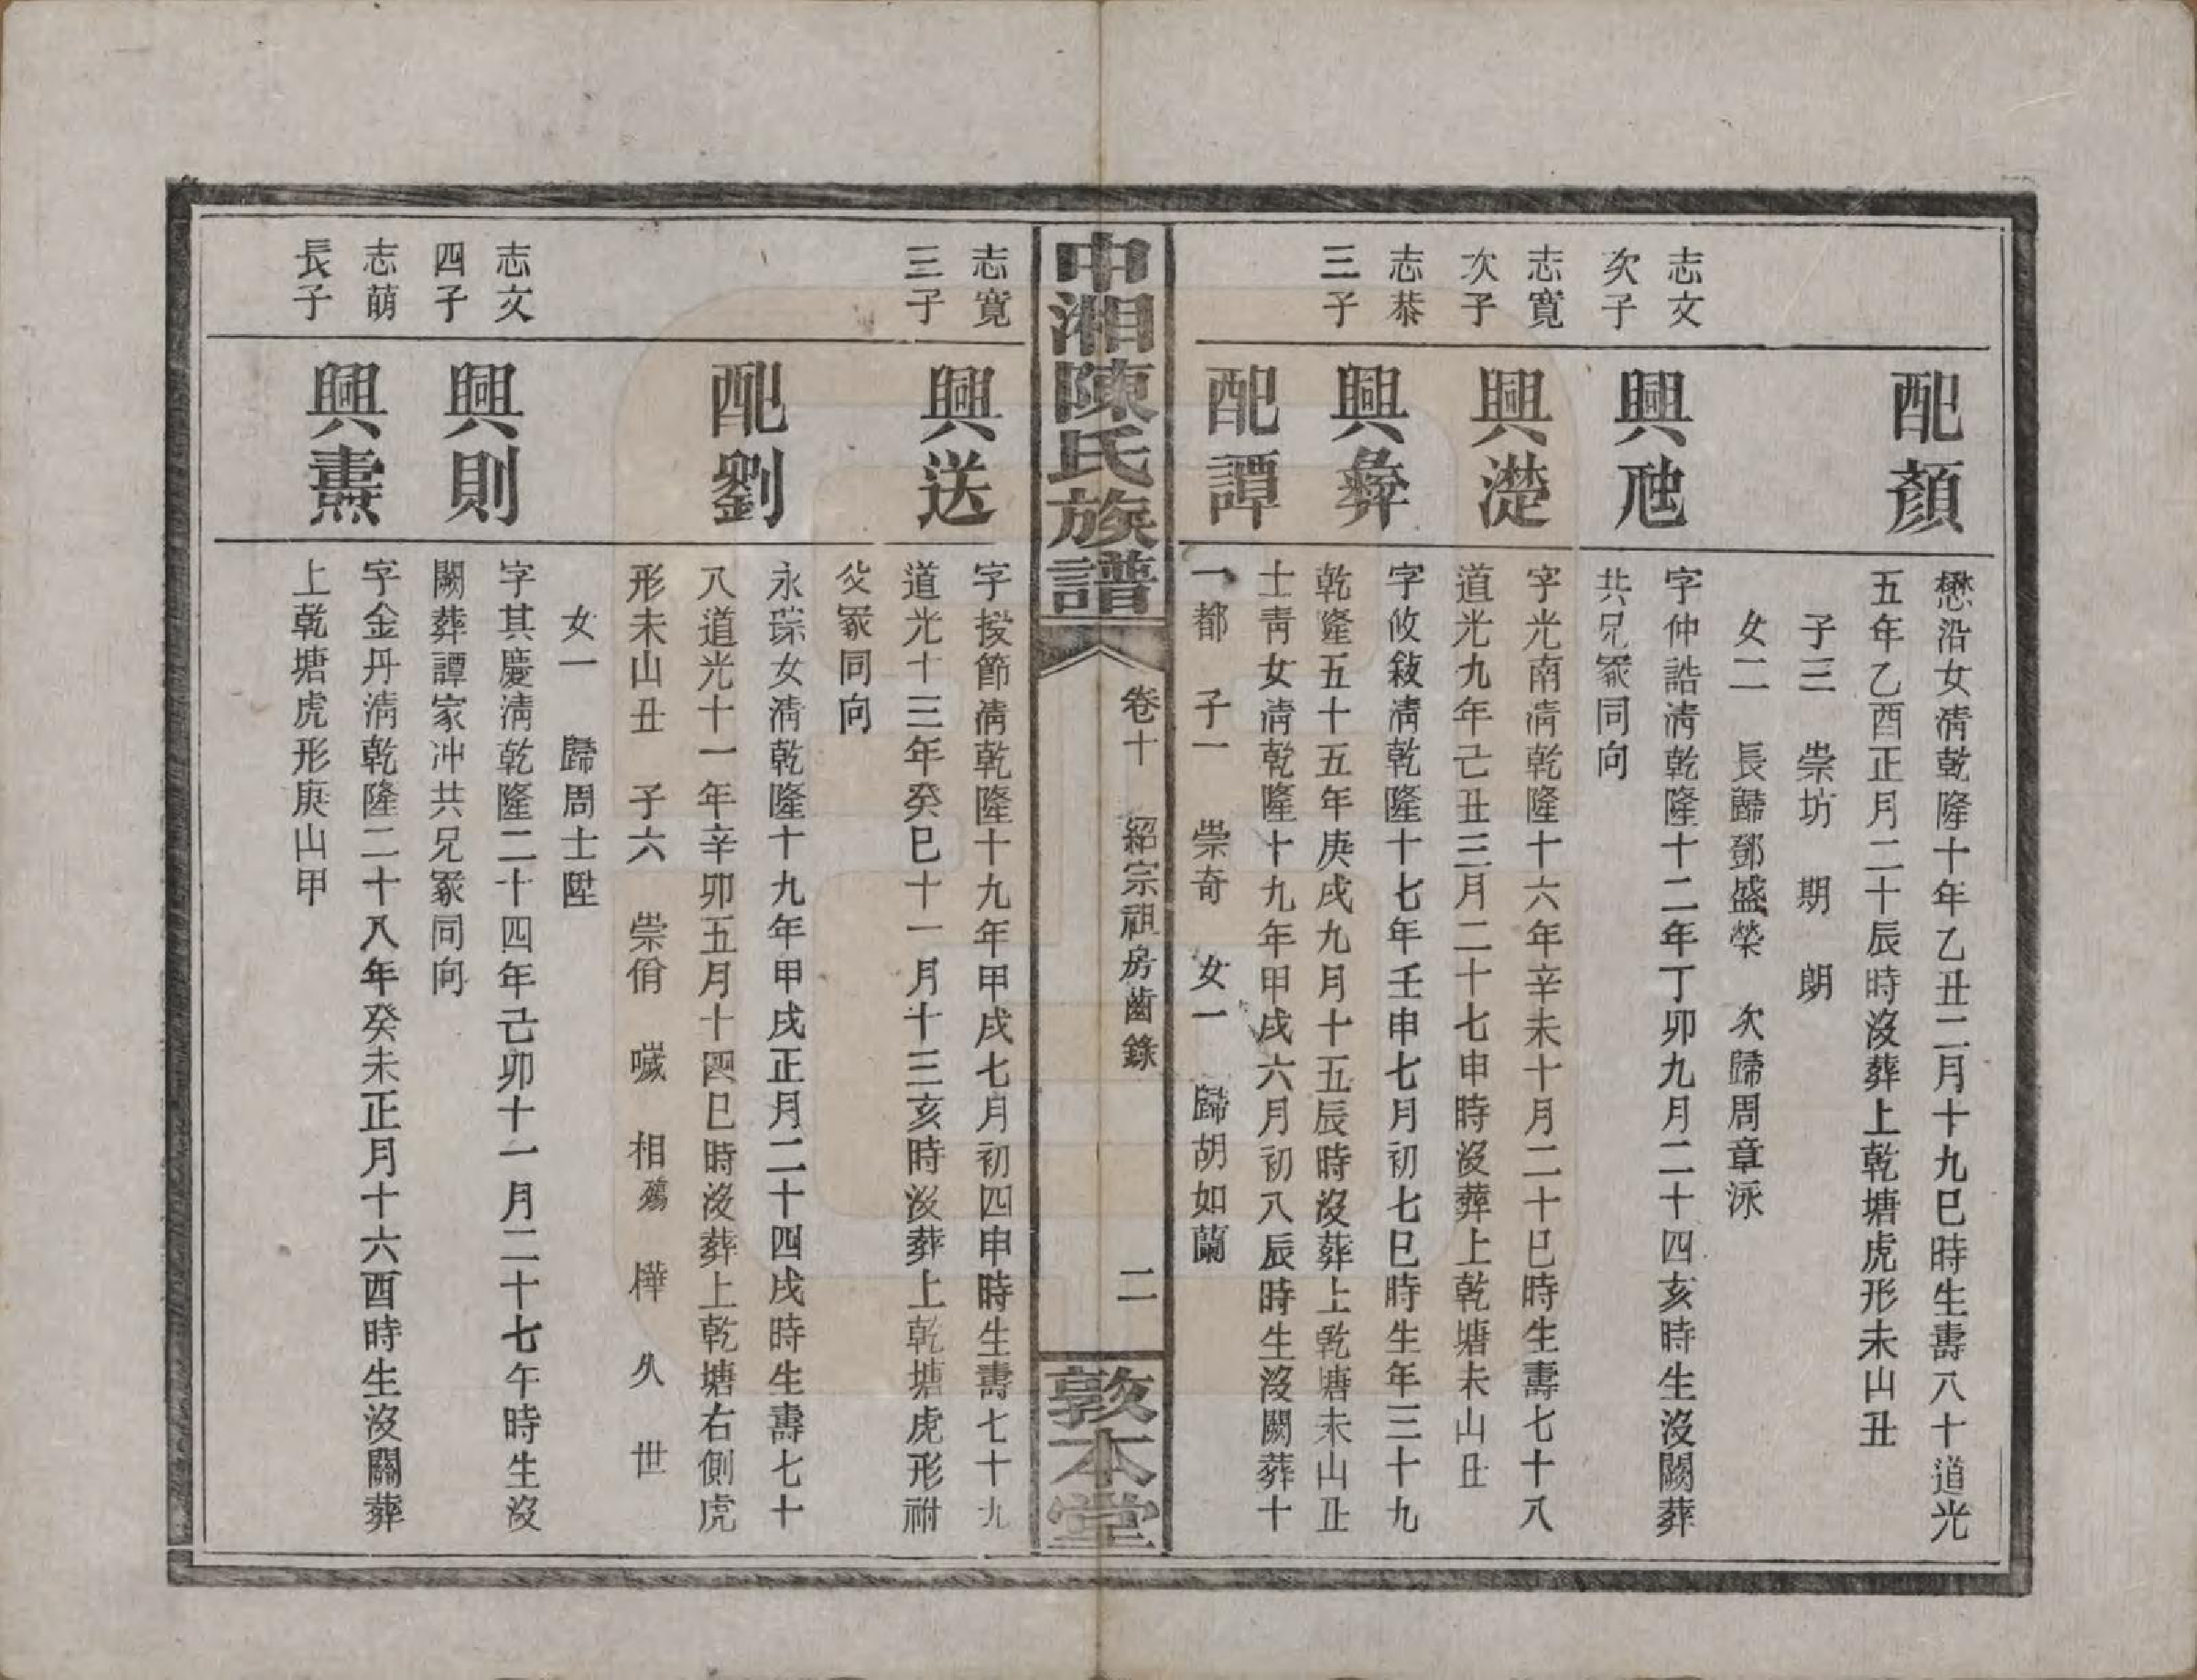 配顏
懋沿女淸乾隆十年乙丑二月十九巳時生壽八十道光
五年乙酉正月二十辰時沒葬上乾塘虎形未山丑
子三 崇坊 期 朗
女二 長歸鄧盛榮 次歸周章泳
志文
次子
興虺
字仲誥淸乾隆十二年丁卯九月二十四亥時生沒闕葬
共兄冢同向
志寬
次子
興濋
字光南淸乾隆十六年辛未十月二十巳時生壽七十八
道光九年己丑三月二十七申時沒葬上乾塘未山丑
志恭
三子
興彝
字攸敍淸乾隆十七年壬申七月初七巳時生年三十九
乾隆五十五年庚戌九月十五辰時沒葬上乾塘未山丑
配譚
士靑女淸乾隆十九年甲戌六月初八辰時生沒闕葬十
一都 子一 崇奇 女一 歸胡如蘭
中湘陳氏族譜
卷十 紹宗祖房齒錄
二
敦本堂
志寬
三子
興送
字授節淸乾隆十九年甲戌七月初四申時生壽七十九
道光十三年癸巳十一月十三亥時沒葬上乾塘虎形祔
父冢同向
配劉
永琮女淸乾隆十九年甲戌正月二十四戌時生壽七十
八道光十一年辛卯五月十四巳時沒葬上乾塘右側虎
形未山丑 子六 崇佾 噦 相殤 樺 久 世
女一 歸周士陞
志文
四子
興則
字其慶淸乾隆二十四年己卯十一月二十七午時生沒
闕葬譚家冲共兄冢同向
志萠
長子
興燾
字金丹淸乾隆二十八年癸未正月十六酉時生沒闕葬
上乾塘虎形庚山甲